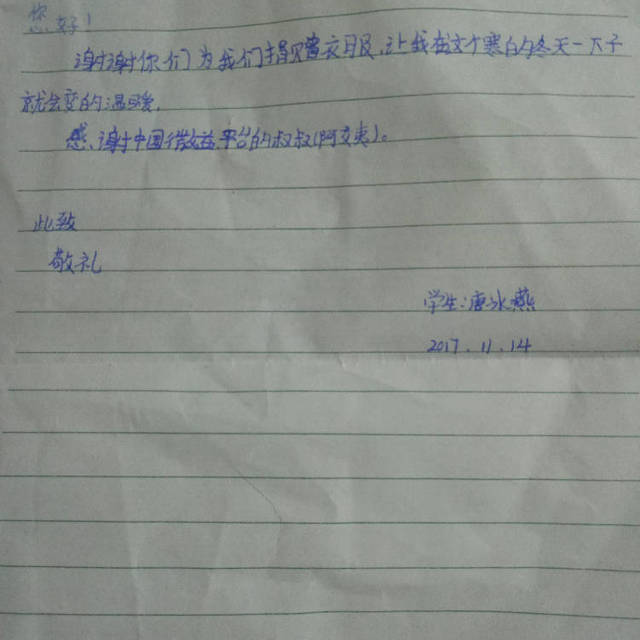 您好!
谢谢你们为我们捐赠衣服,让我在这个寒的冬天一下子
就会变的温暖。
感谢中国微公益平台的叔叔(阿姨)。
此致
敬礼
学生:唐冰燕
2017.11.14